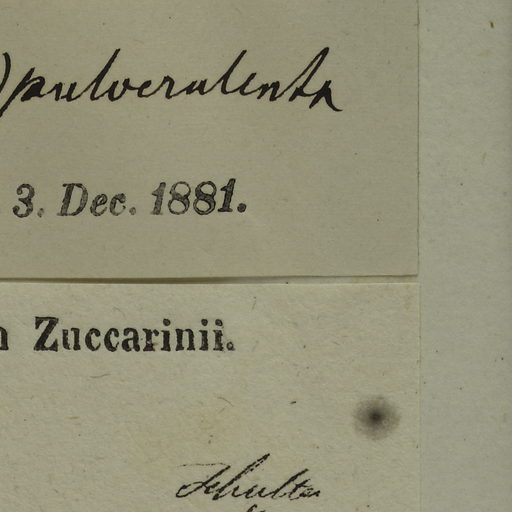 ) pulverulenta
3. Dec. 1881.
Zuccarinii.
Schultes